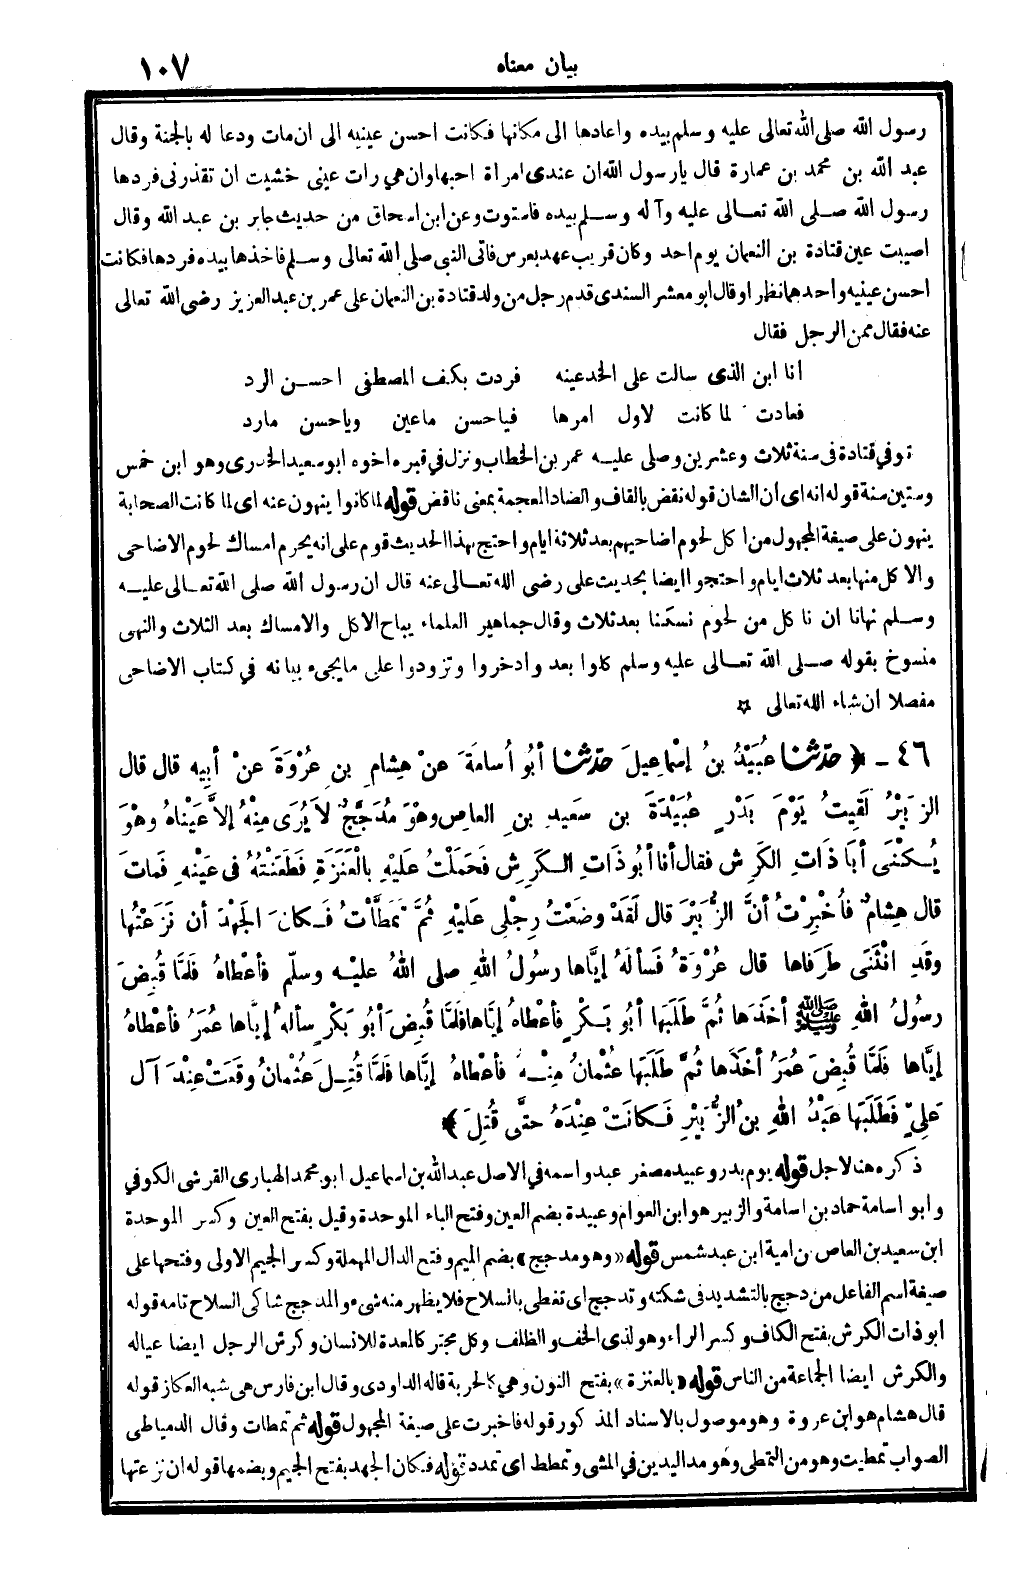 بيان معناه
١٠٧
رسول الله صلى الله تعالى عليه وسلم بيده واعادها الى مكانها فكانت احسن عينيه الى ان مات ودعا له بالجنة وقال
عبد الله بن محمد بن عمارة قال يا رسول الله ان عندى امراة احبها وان هي رات عينى خشيت ان تقذرنى فردها
رسول الله صلى الله تعالى عليه وآله وسلم بيده فاستوت وعن ابن اسحاق من حديث جابر بن عبد الله وقال
اصيبت عين قتادة بن النعمان يوم احد وكان قريب عهد بعرس فاتى النبي صلى الله تعالى وسلم فاخذها بيده فردها فكانت
احسن عينيه واحدهما نظرا وقال ابو معشر السندى قدم رجل من ولد قتادة بن النعمان على عمر بن عبد العزيز رضى الله تعالى
عنه فقال ممن الرجل فقال
انا ابن الذى سالت على الخد عينه فردت بكف المصطفى احسن الرد
فعادت لما كانت لاول امرها فياحسن ماعين وياحسن مارد
توفي قتادة فى سنة ثلاث وعشرين وصلى عليه عمر بن الخطاب ونزل في قبره اخوه ابو سعيد الخدرى وهو ابن خمس
وستين سنة قوله انه اى ان الشان قوله نقض بالقاف والضاد المعجمة بمعنى ناقض قوله لما كانوا ينهون عنه اى لما كانت الصحابة
ينهون على صيغة المجهول من اكل لحوم اضاحيهم بعد ثلاثة ايام واحتج بهذا الحديث قوم على انه يحرم امساك لحوم الاضاحى
والاكل منها بعد ثلاث ايام واحتجوا ايضا بحديث على رضى الله تعالى عنه قال ان رسول الله صلى الله تعالى عليه
وسلم نهانا ان ناكل من لحوم نسكنا بعد ثلاث وقال جماهير العلماء يباح الاكل والامساك بعد الثلاث والنهى
منسوخ بقوله صلى الله تعالى عليه وسلم كلوا بعد وادخروا وتزودوا على مايجىء بيانه في كتاب الاضاحى
مفصلا ان شاء الله تعالى ☆
٤٦ - ﴿ حدّثنا عُبَيْدُ بنُ إسْماعِيلَ حدّثنا أبُو أُسامَةَ عنْ هِشامِ بنِ عُرْوَةَ عنْ أبِيهِ قال قال
الزُّبَيْرُ لَقِيتُ يَوْمَ بَدْرٍ عُبَيْدَةَ بن سَعِيدِ بنِ العاصِ وهْوَ مُدَجَّجٌ لاَ يُرَى مِنْهُ إلاَّ عَيْناهُ وهْوَ
يُكْنَى أبَا ذَاتِ الكَرِشِ فقال أنا أبُو ذَاتِ الكَرِشِ فَحَمَلْتُ عَلَيْهِ بالْعَنَزَةِ فَطَعَنْتُهُ فى عَيْنِهِ فَماتَ
قال هِشامٌ فأُخْبِرْتُ أنَّ الزُّبَيْرَ قال لَقَدْ وضَعْتُ رِجْلِى عَلَيْهِ ثُمَّ تَمَطَّأْتُ فَكانَ الجَهْدَ أن نَزَعْتُها
وقَدِ انْثَنَى طَرَفاها قال عُرْوَةُ فَسألَهُ إيَّاها رسولُ اللهِ صلى اللهُ عليْهِ وسلّم فأعْطاهُ فَلَمَّا قُبِضَ
رسُولُ اللهِ ﷺ أخَذَها ثُمَّ طَلَبَها أبُو بَكْرٍ فأعْطاهُ إيَّاها فَلَمَّا قُبِضَ أبُو بَكْرٍ سألَهُ إيَّاها عُمَرُ فأعْطاهُ
إيَّاها فَلَمَّا قُبِضَ عُمَرُ أخَذَها ثُمَّ طَلَبَها عثْمانُ مِنْهُ فأعْطاهُ إيَّاها فَلَمَّا قُتِلَ عثْمانُ وقَعَتْ عِنْدَ آلِ
عَلِىٍّ فَطَلَبَها عَبْدُ اللهِ بنُ الزُّبَيْرِ فَكانَتْ عِنْدَهُ حتَّى قُتِلَ ﴾
ذكره هنا لاجل قوله يوم بدر وعبيد مصغر عبد واسمه في الاصل عبد الله بن اسماعيل ابو محمد الهبارى القرشى الكوفي
وابو اسامة حماد بن اسامة والزبير هو ابن العوام وعبيدة بضم العين وفتح الباء الموحدة وقيل بفتح العين وكسر الموحدة
ابن سعيد بن العاص بن امية ابن عبد شمس قوله «وهو مدجج» بضم الميم وفتح الدال المهملة وكسر الجيم الاولى وفتحها على
صيغة اسم الفاعل من دجج بالتشديد فى شكته وتدجج اى تغطى بالسلاح فلا يظهر منه شىء والمدجج شاكى السلاح تامه قوله
ابو ذات الكرش بفتح الكاف وكسر الراء وهو لذى الخف والظلف وكل مجتر كالمعدة للانسان وكرش الرجل ايضا عياله
والكرش ايضا الجماعة من الناس قوله «بالعنزة» بفتح النون وهي كالحربة قاله الداودى وقال ابن فارس هى شبه العكاز قوله
قال هشام هو ابن عروة وهو موصول بالاسناد المذكور قوله فاخبرت على صيغة المجهول قوله ثم تمطات وقال الدمياطى
الصواب تمطيت وهو من التمطى وهو مد اليدين في المشى وتمطط اى تمدد قوله فكان الجهد بفتح الجيم وبضمها قوله ان نزعتها